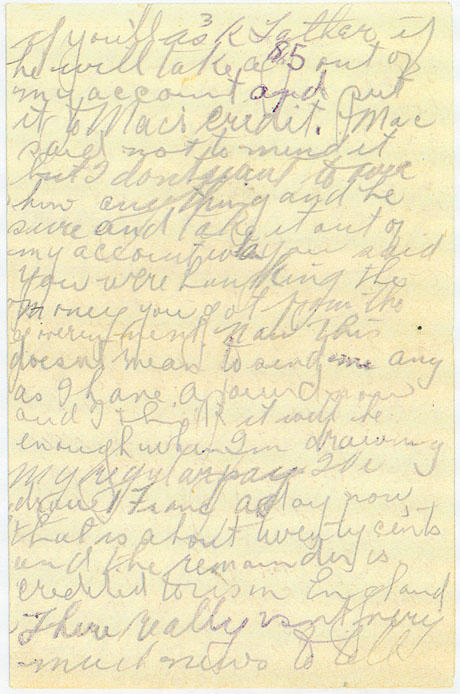 3
if you'll ask Father if
he will take a $5 out of
my account and put
it to Mac's credit. Mac
said not to mind it
but I dont want to owe
him anything and be
sure and take it out of
my account as you said
you were banking the
money you got from the
government. Now this
doesn't mean to send me any
as I have a pound now
and I think it will be
enough when I'm drawing
my regular pay. We
draw 1 Franc a day now,
that is about twenty cents
and the remainder is
credited to us in England
There really isn't very
much news to tell